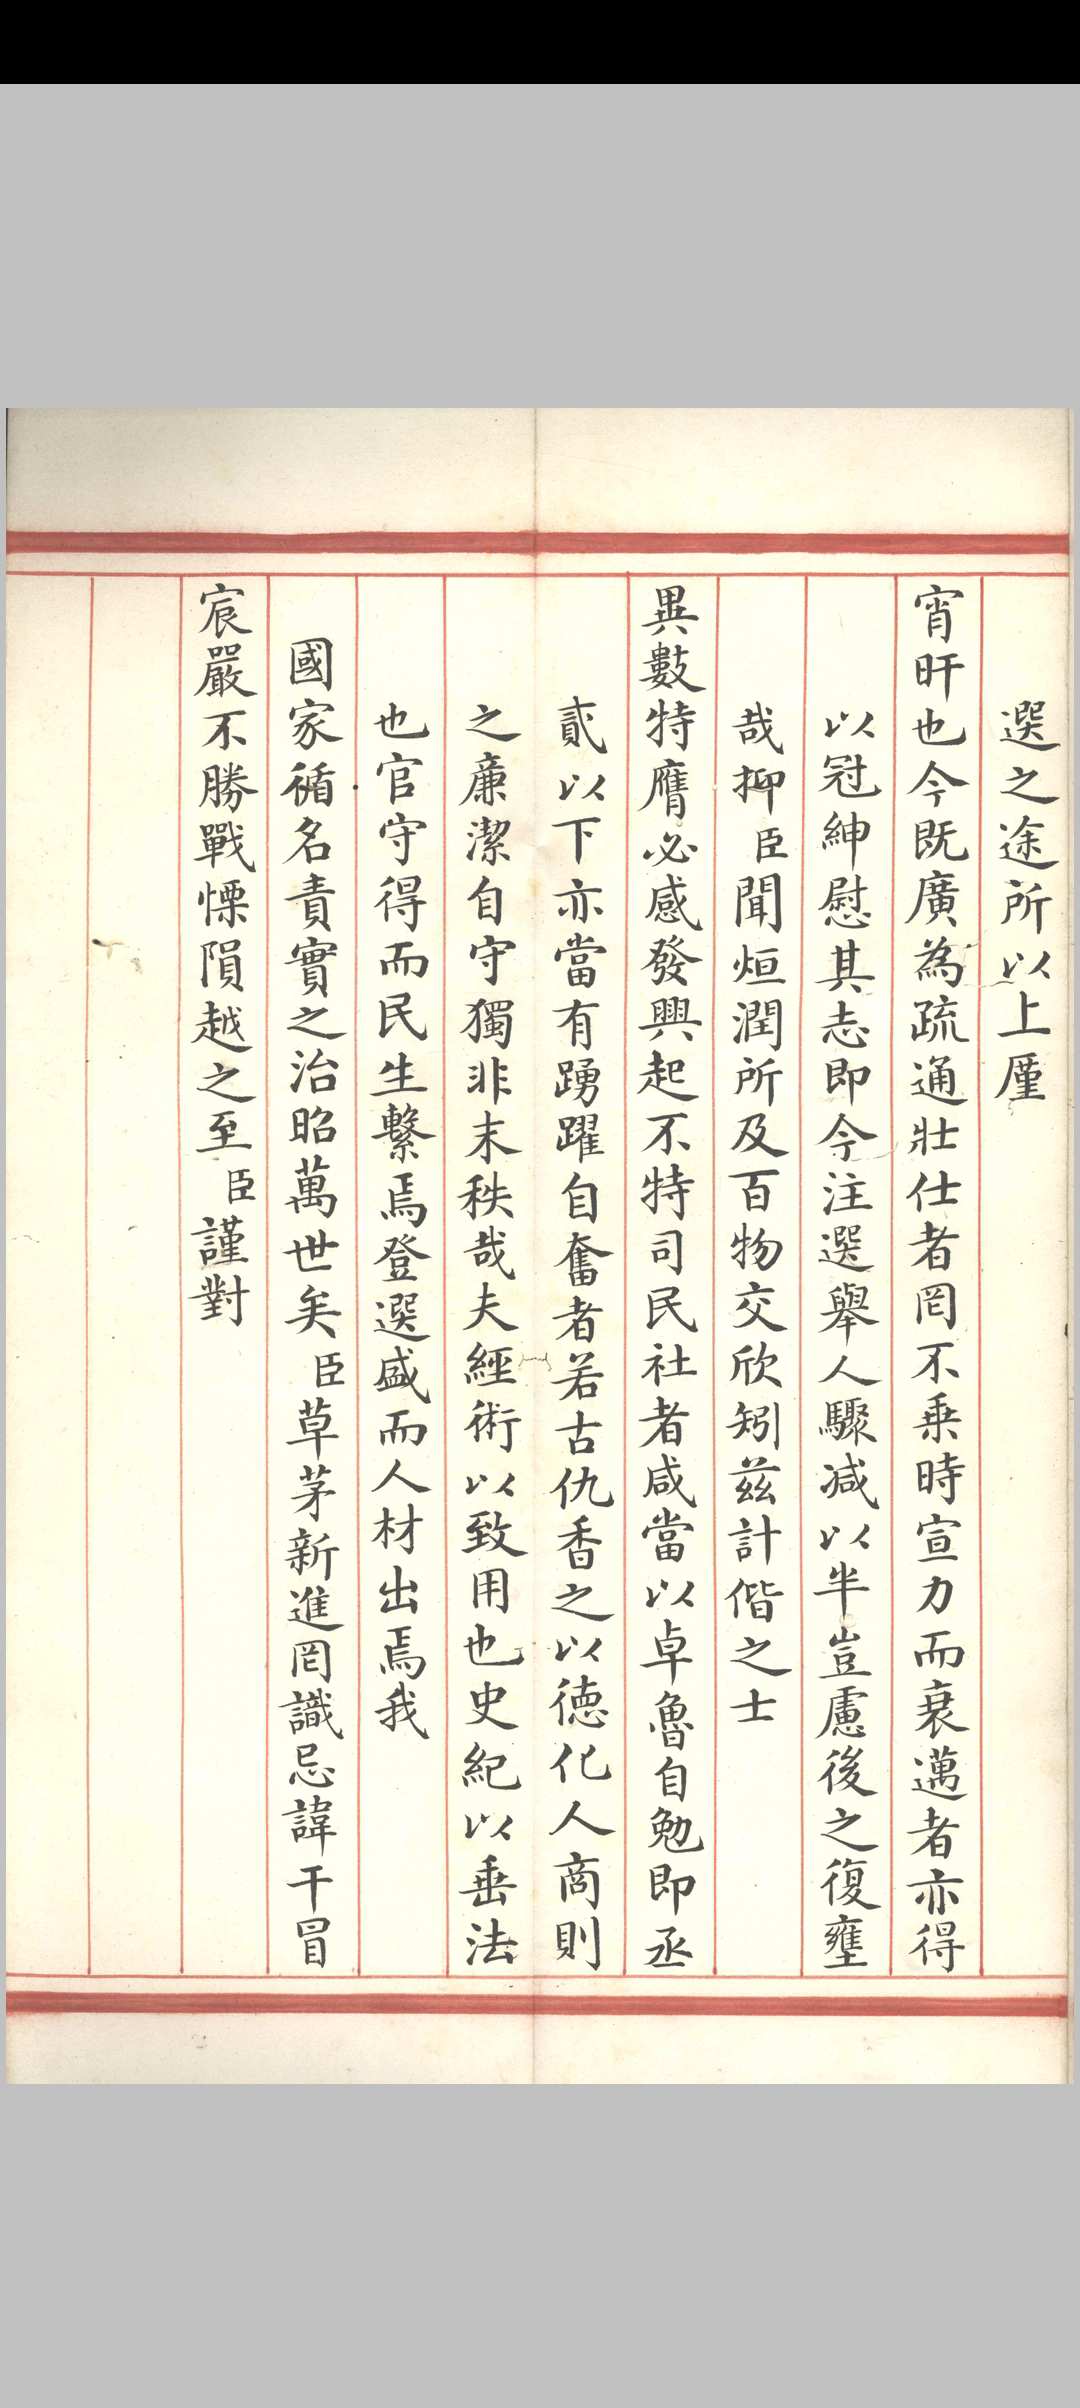 選之途所以上厪
宵旰也今既廣為疏通壯仕者罔不乗時宣力而衰邁者亦得
以冠紳慰其志即今注選舉人驟减以半豈慮後之復壅
哉抑臣聞烜潤所及百物交欣矧兹計偕之士
異數特膺必感發興起不特司民社者咸當以卓魯自勉即丞
貳以下亦當有踴躍自奮者若古仇香之以德化人商則
之廉潔自守獨非末秩哉夫經術以致用也史紀以垂法
也官守得而民生繫焉登選盛而人材出焉我
國家循名責實之治昭萬世矣臣草茅新進罔識忌諱干冒
宸嚴不勝戰慄隕越之至臣謹對